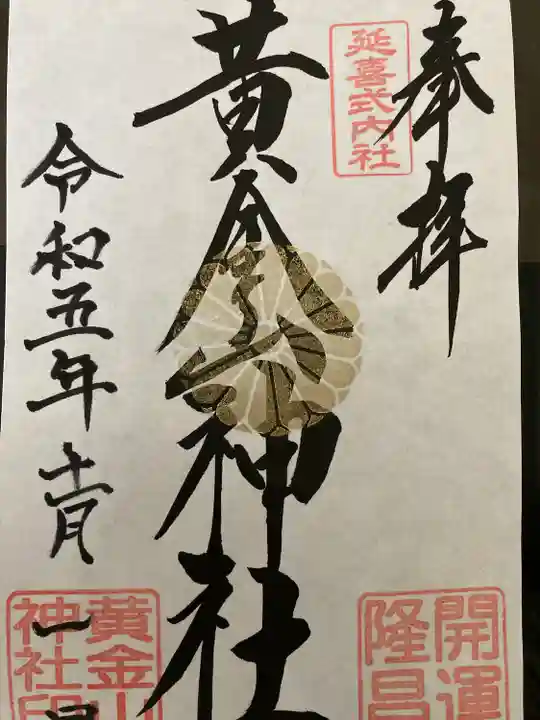 奉拝
延喜式内社
黄金山神社
令和五年十一月一日
開運
隆昌
黄金山
神社印